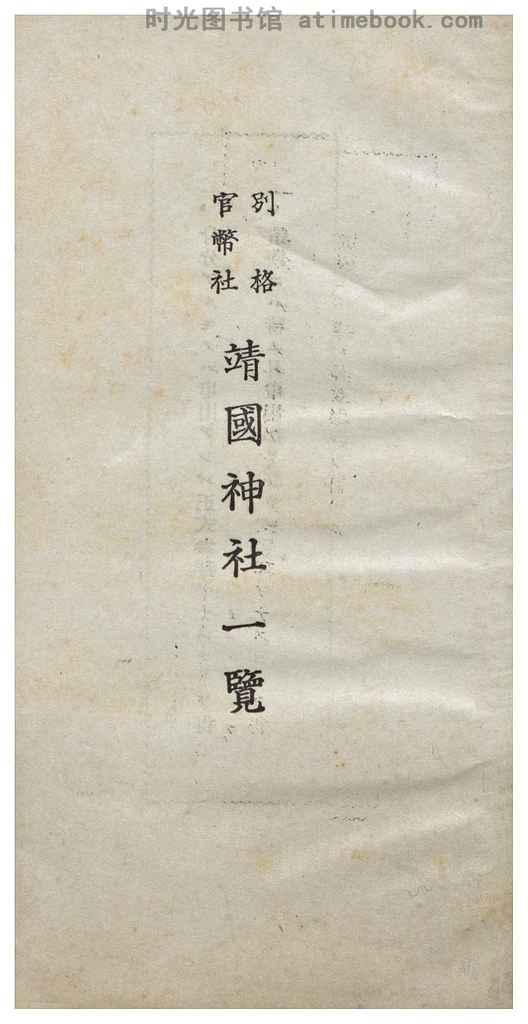 时光图书馆 atimebook.com
別格
官幣社
靖國神社一覽